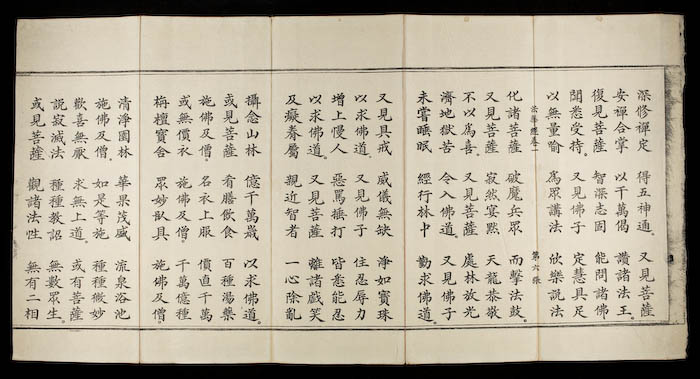 深修禪定 得五神通。 又見菩薩
安禪合掌 以千萬偈 讚諸法王。
復見菩薩 智深志固 能問諸佛
聞悉受持。 又見佛子 定慧具足
以無量喻 為眾講法 欣樂說法
法華經卷一 第六張
化諸菩薩 破魔兵眾 而擊法鼓。
又見菩薩 寂然宴默 天龍恭敬
不以為喜 又見菩薩 處林放光
濟地獄苦 令入佛道。 又見佛子
未嘗睡眠 經行林中 勤求佛道。
又見具戒 威儀無缺 淨如寶珠
以求佛道。 又見佛子 住忍辱力
增上慢人 惡罵捶打 皆悉能忍
以求佛道。 又見菩薩 離諸戲笑
及癡眷屬 親近智者 一心除亂
攝念山林 億千萬歲 以求佛道。
或見菩薩 肴膳飲食 百種湯藥
施佛及僧。 名衣上服 價直千萬
或無價衣 施佛及僧 千萬億種
栴檀寶舍 眾妙臥具 施佛及僧
清淨園林 華果茂盛 流泉浴池
施佛及僧。 如是等施 種種微妙
歡喜無厭 求無上道。 或有菩薩
說寂滅法 種種教詔 無數眾生。
或見菩薩 觀諸法性 無有二相